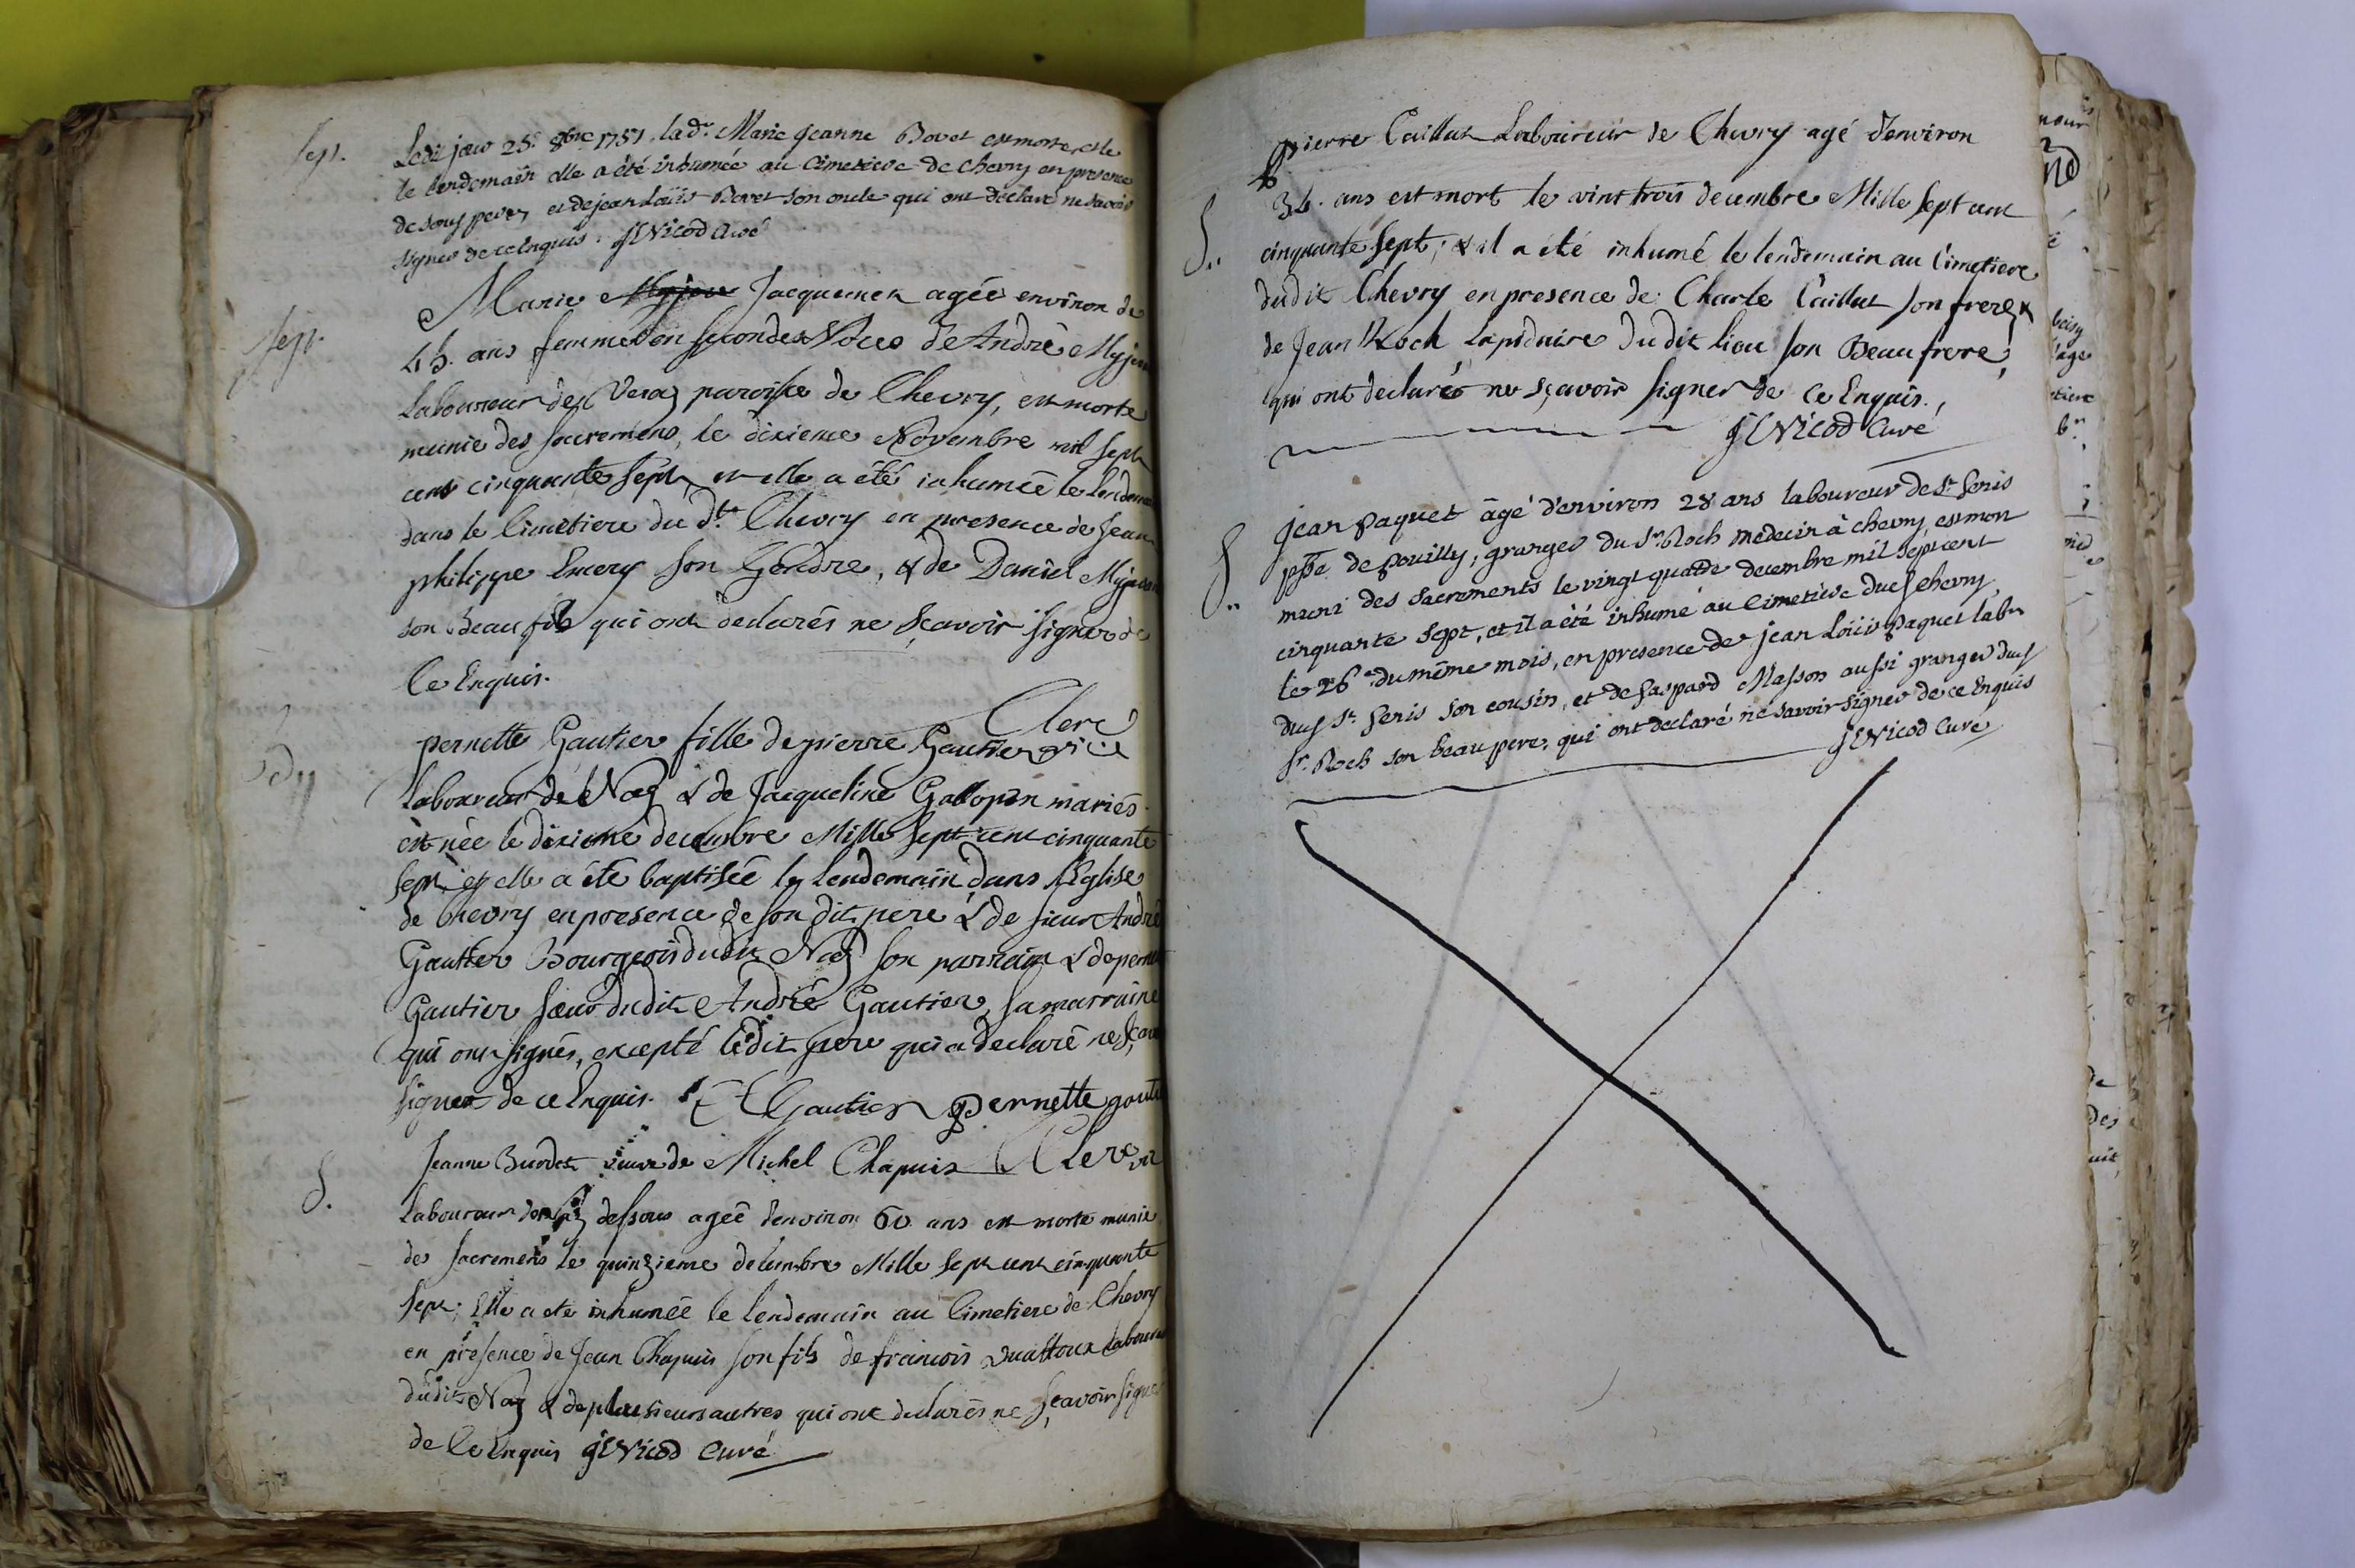 sep.
Ledi jour 25e 8bre 1757 la de Marie Jeanne Bovet est morte, et le
le lendemain elle a été inhumée au cimetiere de chevry en presence
de son pere, et de jean Loüis Bovet son oncle qui ont déclaré ne savoir
signer de ce Enquis. JE Nicod Curé
sep.
Marie Jacquemet agée environ de
45. ans femme en secondes Noces de André Myjon
Laboureur de Veraz paroisse de Chevry, est morte
munie des sacremens, le dixieme Novembre mil sept
cens cinquante sept, et elle a été inhumée le lendemain
dans le Cimetiere du dt Chevry en presence de Jean
philippe Emery son Gendre, & de Daniel
son Beau fils qui ont declarés ne sçavoir signer de
ce Enquis.
Clerc vice
pernette Gautier fille de pierre Gautier
Laboureur de Naz & de Jacqueline Gallopin mariés
est née le dixieme decembre Mille sept cent cinquante
sept et elle a été baptisée le lendemain dans l'Eglise
de Chevry en presence de son dit pere & de sieur André
Gautier Bourgeois dudit Naz son parrain & de pernette
Gautier sœur dudit André Gautier, sa marraine
qui ont signés, excepté ledit pere qui a declaré ne sçavoir
signer de ce Enquis. Gautier pernette goutie
Clerc vic
S.
Jeanne Burdet veuve de Michel Chapuis
Laboureur de Naz dessous ageé denviron 60 ans est morte munie
des sacremens le quinzieme decembre Mille sept cent cinquante
sept; Elle a été inhumée le lendemain au Cimetiere de Chevry
en présence de Jean Chapuis son fils de francois Laboureur
dudit Naz & de plusieurs autres qui ont declarés ne sçavoir signer
de ce Enquis JE Nicod Curé
pierre Caillat Laboureur de Chevry agé denviron
34. ans est mort le vint trois decembre Mille sept cent
S..
cinquante sept; & il a été inhumé le lendemain au Cimetiere
dudit Chevry en presence de Charle Caillat son frere &
de Jean Roch Lapidaire dudit lieu son Beau frere,
qui ont declarés ne sçavoir signer de ce Enquis.
JE Nicod Curé
S..
jean paquet âgé d'environ 28 ans laboureur de st Genis
psse de pouilly, granger du sr Roch medecin à chevry, est mort
muni des sacrements le vingt quatre decembre mil sept cent
cinquante sept, et il a été inhumé au cimetiere dud chevry
le 26e du même mois, en presence de jean Loüis paquet labr
dud st Genis son cousin, et de Gaspard Masson aussi granger dud
sr Roch son beau pere, qui ont declaré ne savoir signer de ce Enquis
JE Nicod Curé